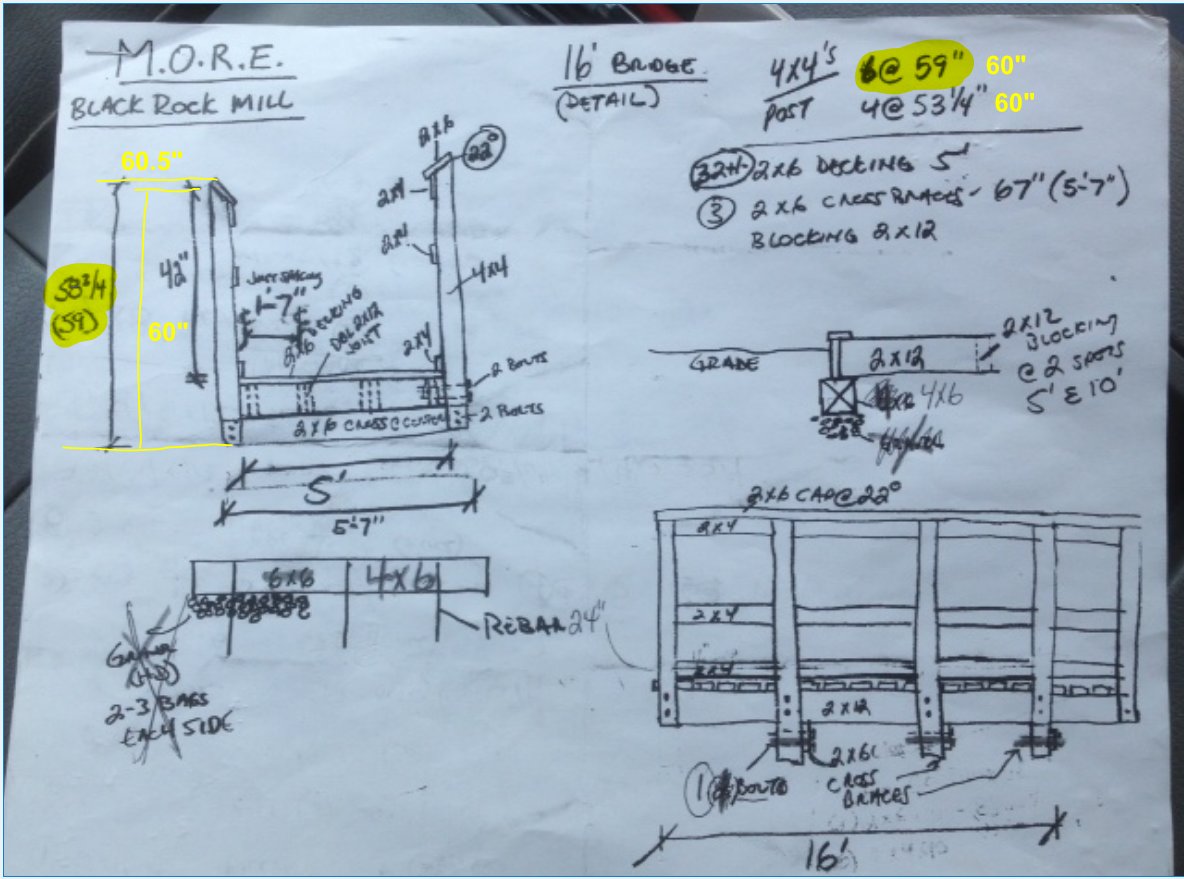 M.O.R.E.
BLACK ROCK MILL
16' BRIDGE
(DETAIL)
4x4's
POST
6@ 59" 60"
4@ 53 1/4" 60"
32+/- 2x6 DECKING 5'
3 2x6 CROSS BRACES - 67" (5'-7")
BLOCKING 2x12
60.5"
58 3/4
(59)
60"
42"
JOIST SPACING
1'-7"
2x6 DECKING
DBL 2x12
JOIST
2x6
22°
2x4
2x4
4x4
2x4
2 BOLTS
2 BOLTS
2x6 CROSS
5'
5'-7"
GRADE
2x12
2x12
BLOCKING
@ 2 SPOTS
5' & 10'
4x6
6x6
4x6
REBAR 24"
2-3 BAGS
EACH SIDE
2x6 CAP@22°
2x4
2x4
2x4
2x12
1
BOLTS
2x6
CROSS
BRACES
16'